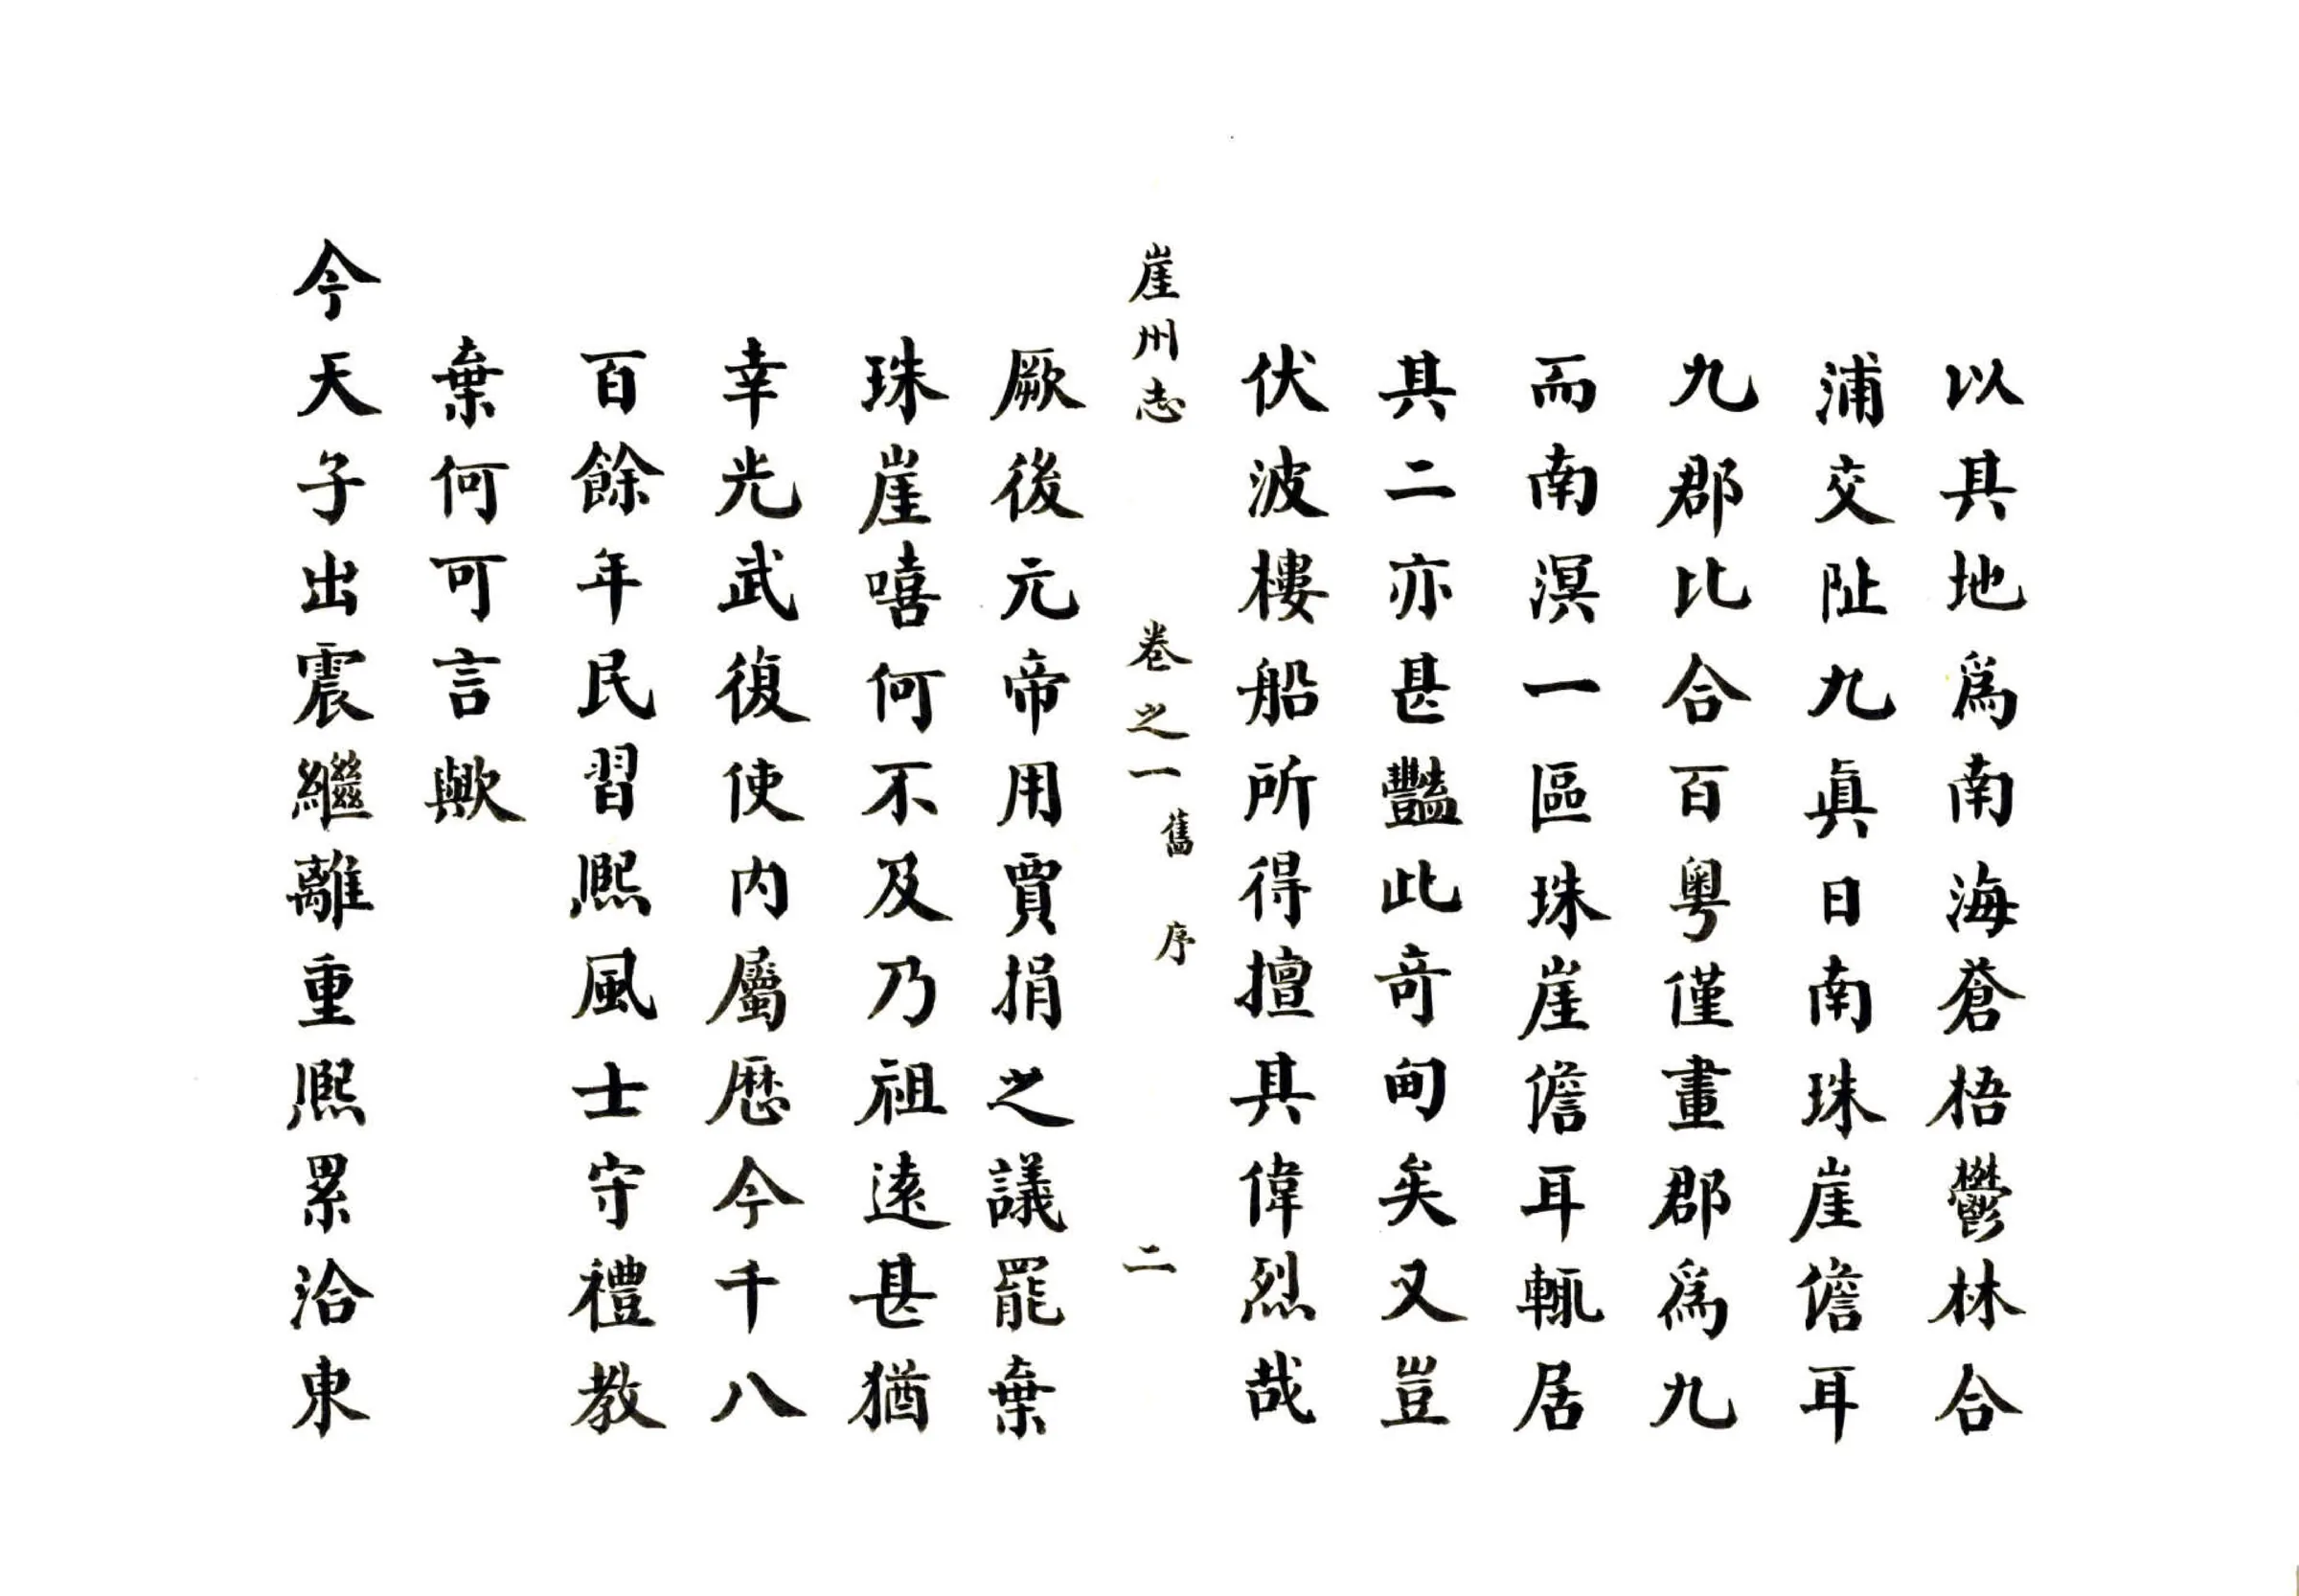 以其地爲南海蒼梧鬱林合
浦交阯九眞日南珠崖儋耳
九郡比合百粤僅畫郡爲九
而南溟一區珠崖儋耳輒居
其二亦甚豔此奇甸矣又豈
伏波樓船所得擅其偉烈哉
崖州志 卷之一 舊序 二
厥後元帝用賈捐之議罷棄
珠崖嘻何不及乃祖遠甚猶
幸光武復使内屬歷今千八
百餘年民習熙風士守禮教
棄何可言歟
今天子出震繼離重熙累洽東